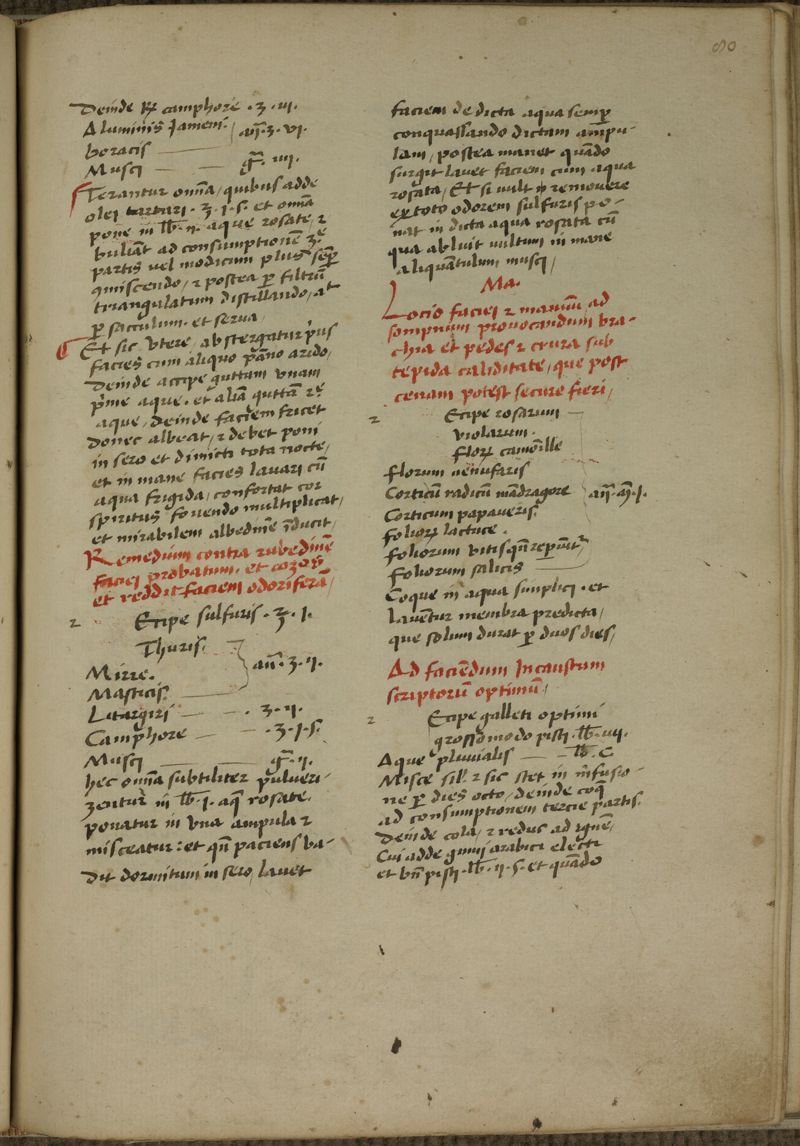 80
Deinde ℞ camphore · ʒ · iij.
Aluminis Jameni
boracis an̄. ʒ. vj.
Musci g̃. iiij.
Terantur om̄ia, quibus adde
olei tartari · ʒ · j · s · et om̄ia
pone in lb. ij. aque rosate, ⁊
buliāt ad consumptionē
partis vel modicum plus, semp̄
miscendo, ⁊ postea p̄ filtrū
triangulatum distillando, at
p̄ sacculum · et serua,
Et sic vtere, abstergatur prius
facies cum aliquo pāno arido,
Deinde accipe guttam vnam
p̄me aque · et aliā guttā
aque, deinde faciem fricet
donec albeat, ⁊ debet poni
in sero et dimitti tota nocte,
et in mane facies lauari cū
aqua frigida, confortat cor
spiritus fouendo multiplicat,
et mirabilem albedinē īducit,
Remedium contra rubedinē
faciei probatum · et
et reddit faciem odoriferā,
Recipe sulfuris · ʒ · j.
Thuris
Mirre. an̄. ʒ. ij.
Masticis
Litargiri · ʒ · ij.
Camphore · ʒ · j · s.
Musci g̃. ij.
hec om̄ia subtiliter pulueri-
zentur in lb. j. aq̄ rosate.
ponatur in vna ampula ⁊
misceatur: et qn̄ paciens va-
dit dormitum in sero, lauet
faciem de dicta aqua semp̄
conquassando dictam ampu-
lam, postea manet quādo
surgit lauet faciem cum aqua
rosata, Et si vult remouere
ex toto odorem sulfuris po-
nat in dicta aqua rosata cū
qua abluit vultum in mane
aliquātulum musci,
Ma.
Locio faciei ⁊ manuū ad
sompnum prouocandum bra-
chia et pedes ⁊ crura sub
tepida caliditate, que post
cenam potest secure fieri,
Recipe rosarum
violarum ·
flor̄ camomille
florum nenufaris
Corticū radicū mādragore an̄. j.
Corticum papaueris
folior̄ lactuce ·
foliorum vitis
foliorum salicis
Coque in aqua simplici · et
lauentur membra predicta,
que solum durat p̄ duos dies,
Ad faciēdum Incaustum
scriptoriū optimū,
Recipe galleti optimi
grossomodo pisti · lb. iij.
Aque pluuialis lb. C
Misce sil̄ ⁊ sic stet in infusio-
ne p̄ dies octo, deinde coq̄
ad consumptionem tercie partis.
Deinde cola, ⁊ reduc ad ignē,
Cui adde gumi arabici electi
et bn̄ pisti · lb. ij · s · et quādo